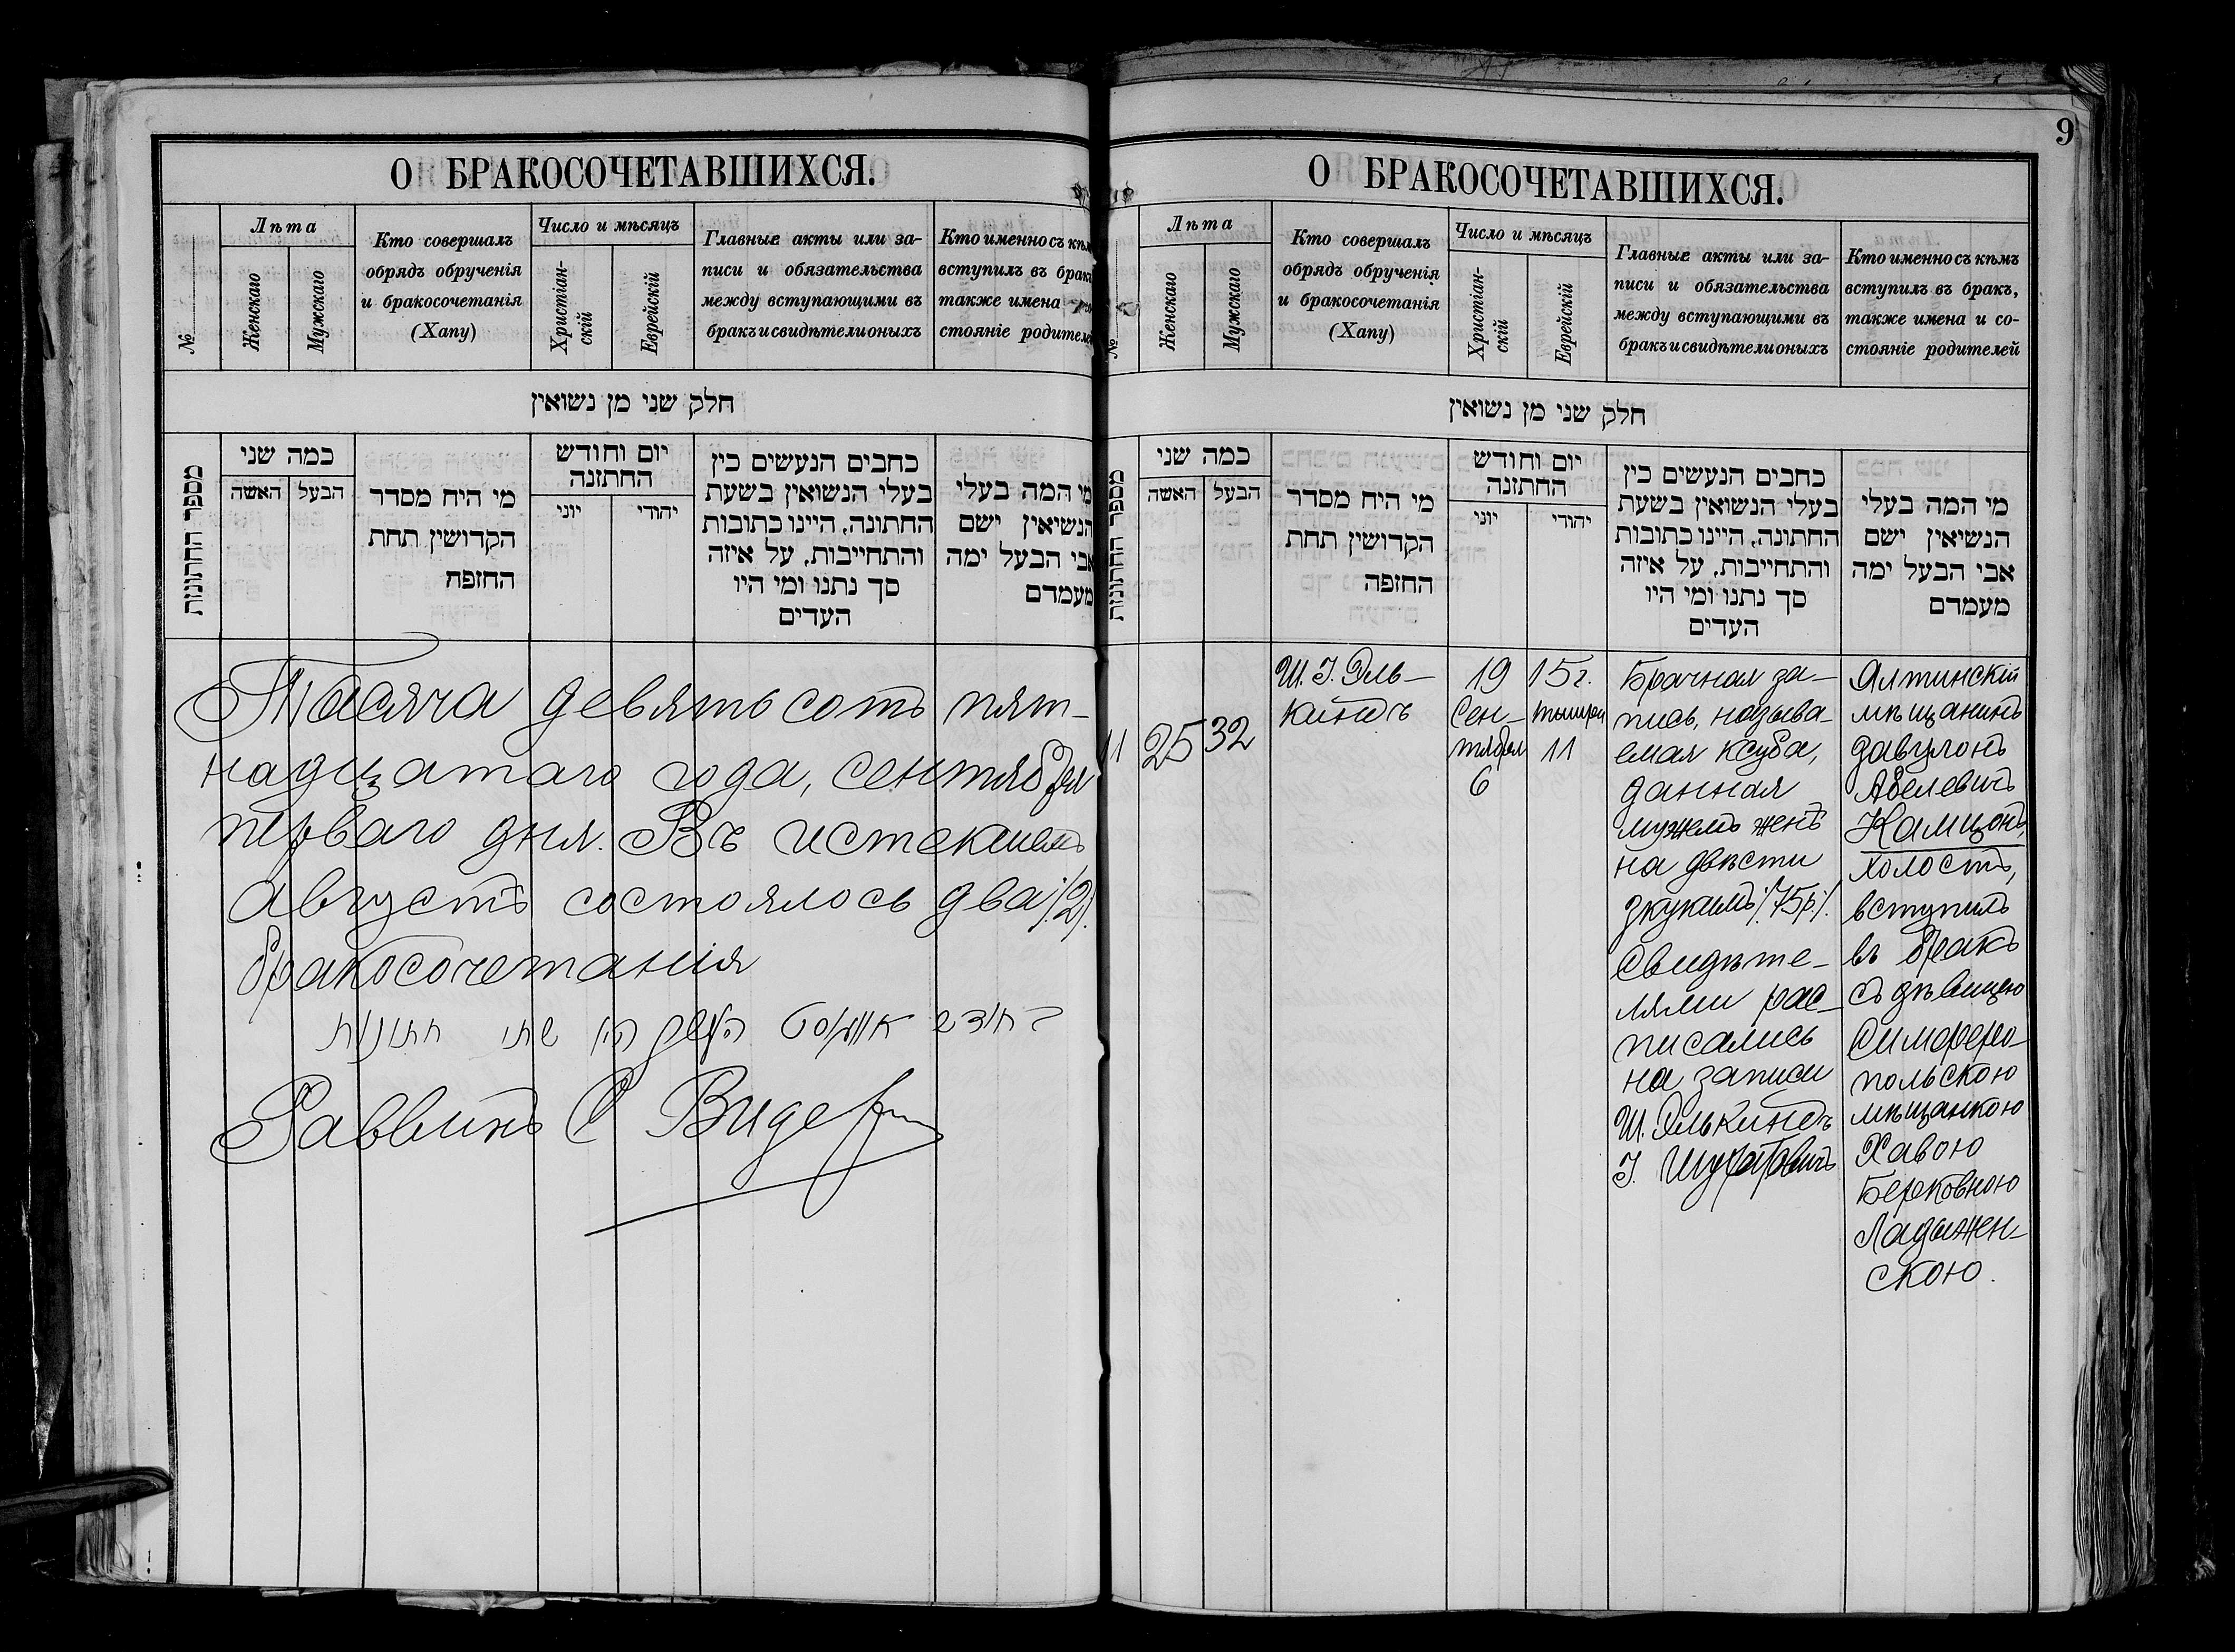 О БРАКОСОЧЕТАВШИХСЯ.
№
Лѣта
Женскаго
Мужскаго
Кто совершалъ
обрядъ обрученія
и бракосочетанія
(Хапу)
Число и мѣсяцъ
Христіан-
скій
Еврейскій
Главные акты или за-
писи и обязательства
между вступающими въ
бракъ и свидѣтели оныхъ
Кто именно съ кѣм
вступилъ въ бракъ
также имена
стояніе родителе
חלק שני מן נשואין
מספר החתונות
כמה שני
האשה
הבעל
מי היח מסדר
הקדושין תחת
החופה
יום וחודש
החתונה
יוני
יהודי
כתבים הנעשים בין
בעלי הנשואין בשעת
החתונה, היינו כתובות
והתחייבות, על איזה
סך נתנו ומי היו
העדים
מי המה בעלי
הנשיאין ישם
אבי הבעל ימה
מעמדם
Тысяча девятьсотъ пят-
надцатаго года, сентября
перваго дня. Въ истекшемъ
августѣ состоялось два /2/.
бракосочетанія
בחודש אוגוסט העבר היו שתי חתונות
Раввинъ С Видер
9
О БРАКОСОЧЕТАВШИХСЯ.
№
Лѣта
Женскаго
Мужскаго
Кто совершалъ
обрядъ обрученія
и бракосочетанія
(Хапу)
Число и мѣсяцъ
Христіан-
скій
Еврейскій
Главные акты или за-
писи и обязательства
между вступающими въ
бракъ и свидѣтели оныхъ
Кто именно съ кѣмъ
вступилъ въ бракъ,
также имена и со-
стояніе родителей
חלק שני מן נשואין
מספר החתונות
כמה שני
האשה
הבעל
מי היח מסדר
הקדושין תחת
החופה
יום וחודש
החתונה
יוני
יהודי
כתבים הנעשים בין
בעלי הנשואין בשעת
החתונה, היינו כתובות
והתחייבות, על איזה
סך נתנו ומי היו
העדים
מי המה בעלי
הנשיאין ישם
אבי הבעל ימה
מעמדם
11
25
32
Ш. І. Эль-
киндъ
19 15 г.
Сен-
тября
6
тишри
11
Брачная за-
пись, называ-
емая ксуба,
данная
мужемъ женѣ
на двѣсти
зкукимъ /75 р/.
Свидѣте-
лями рас-
писались
на записи
Ш. Элькиндъ
І. Шуфатовичъ
Ялтинскій
мѣщанинъ
Авелевичъ
Камцонъ,
холостъ,
вступилъ
въ бракъ
съ дѣвицею
Симферо-
польскою
мѣщанкою
Хавою
Берковною
Ладыжен-
скою.